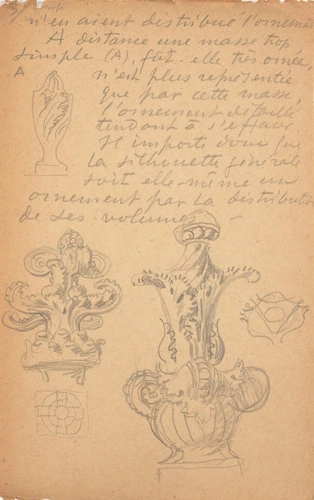 n'en aient distribué l'ornement
A distance une masse trop
simple (A), fût-elle très ornée,
A
n'est plus représentée
que par cette masse,
l'ornement détaillé
tendant à s'effacer
Il importe donc que
la silhouette générale
soit elle-même un
ornement par la distribution
de ses volumes. —